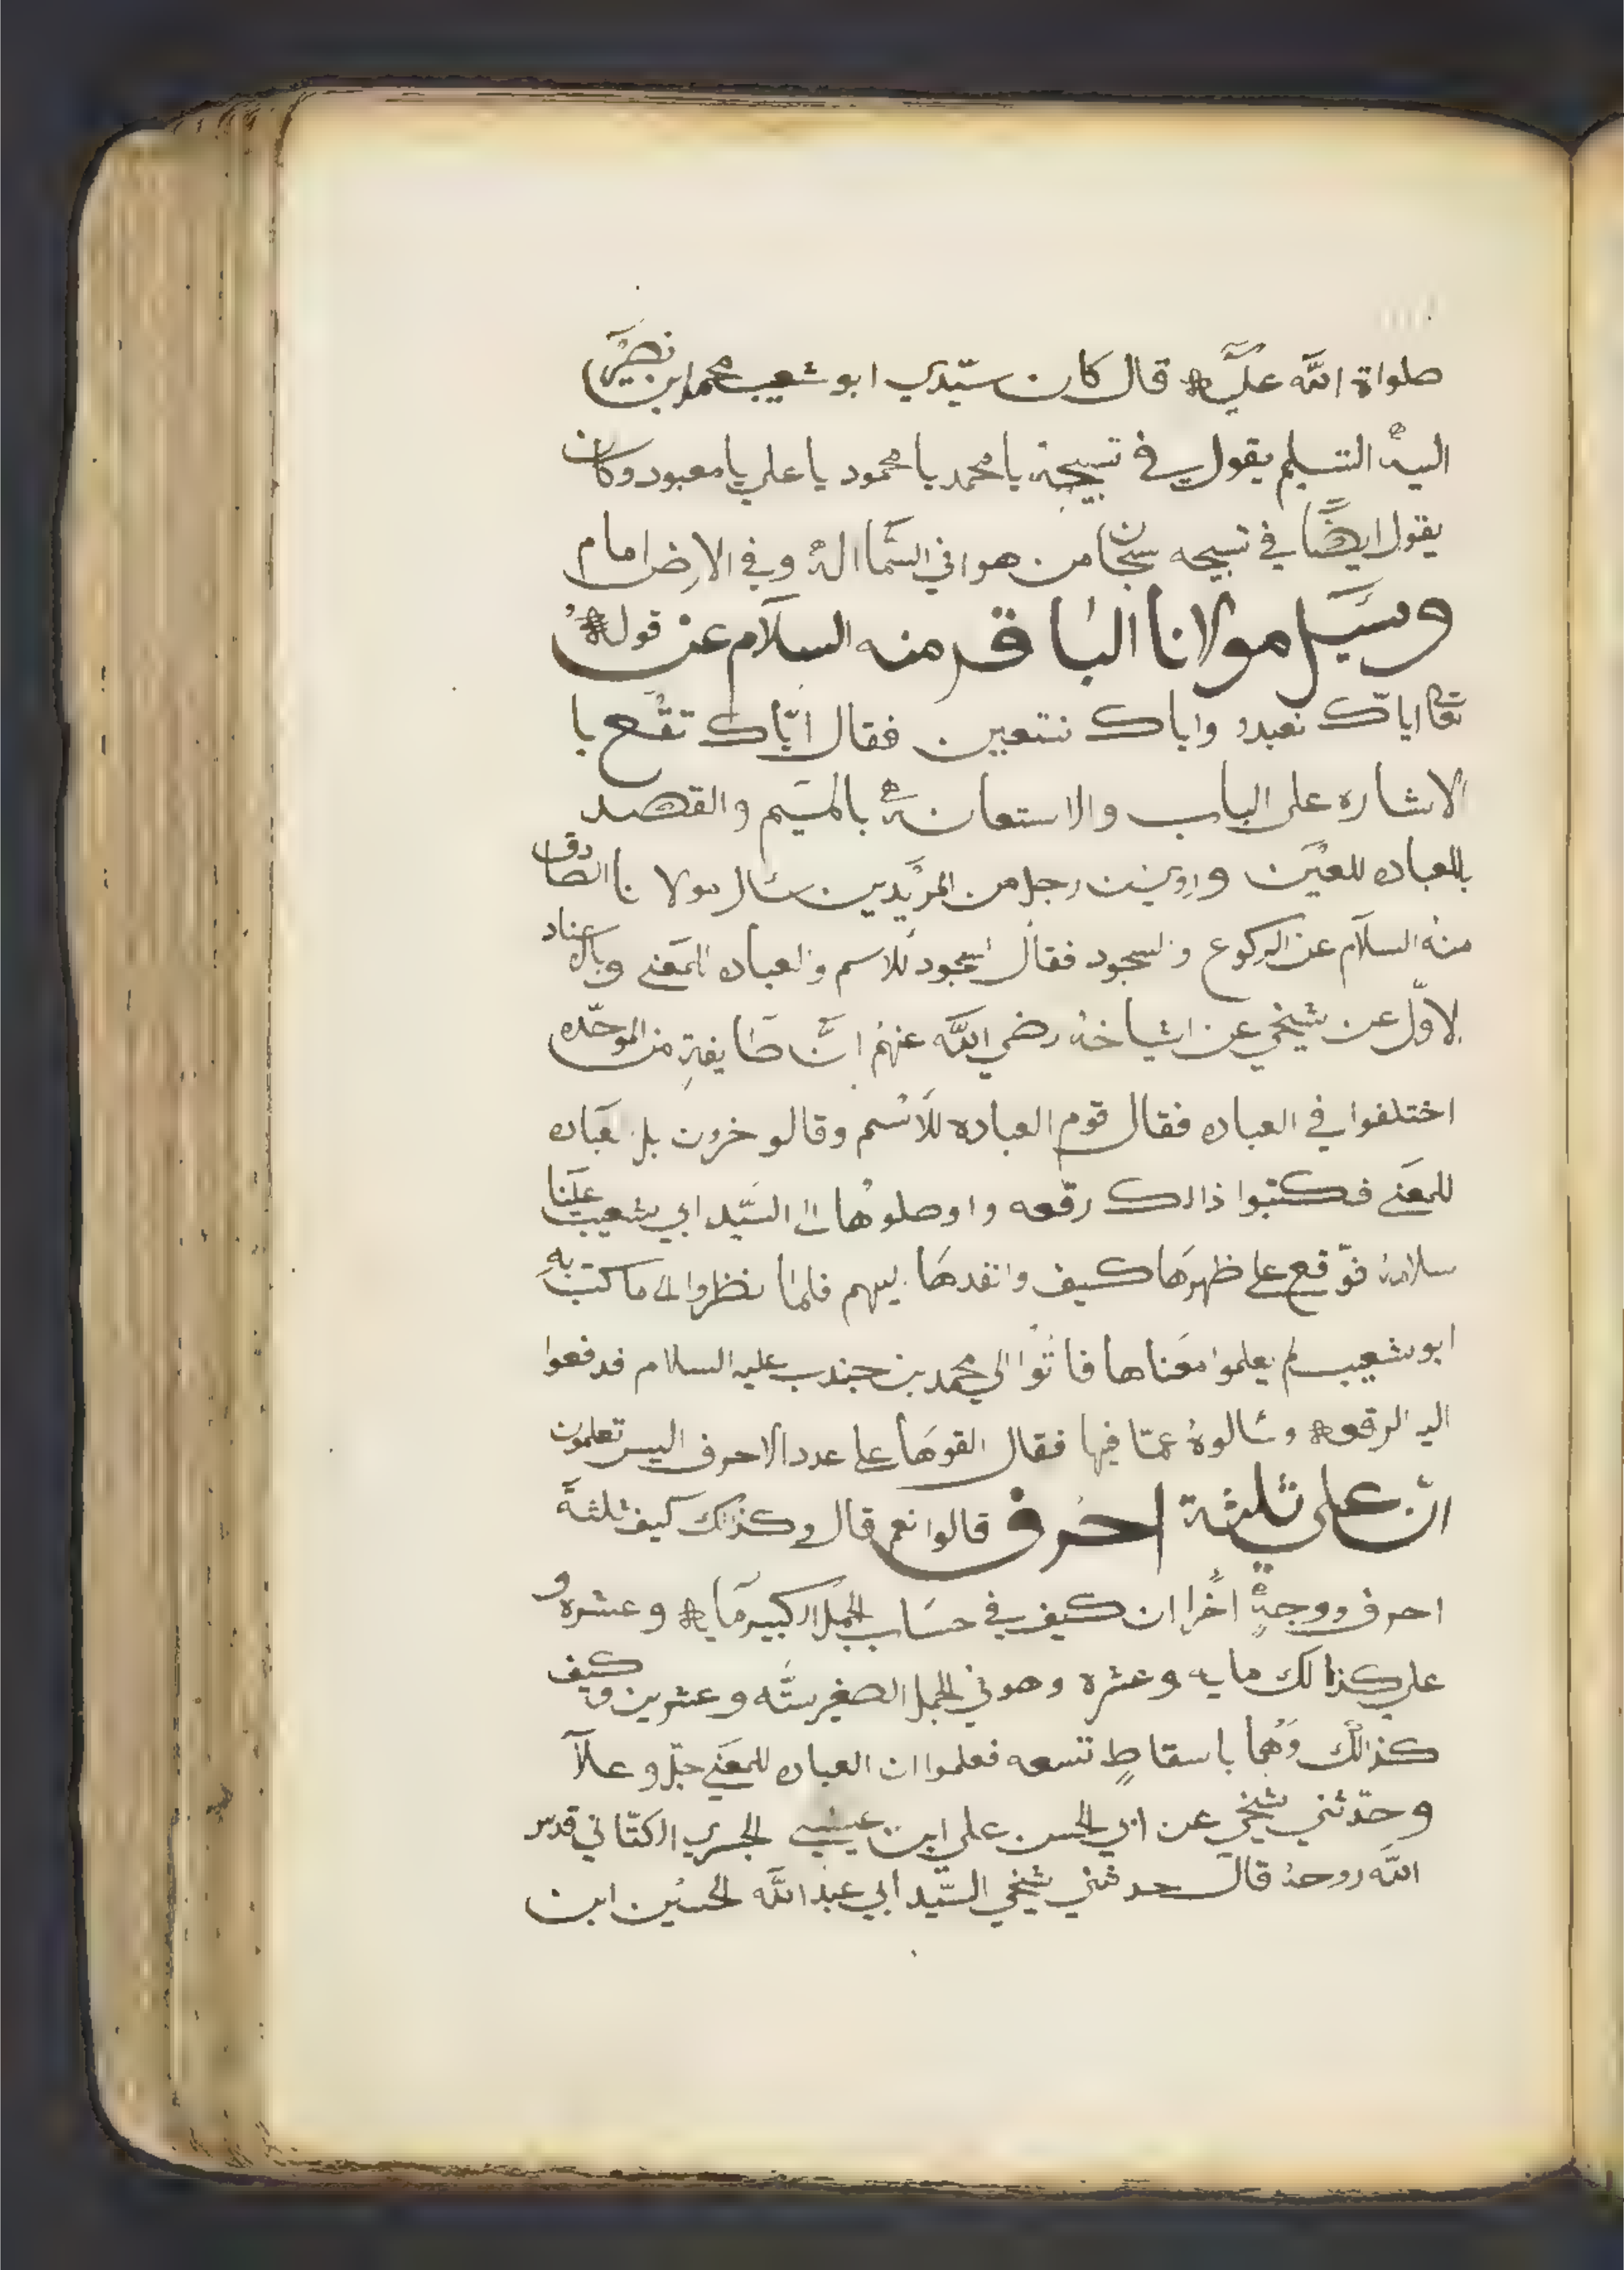 صلواة الله عليه قال كان سيّدي ابو شعيب محمد ابن نصير
اليه التسليم يقول في تسبيحه يا محمد يا محمود يا علي يا معبود وكان
يقول ايضًا في تسبيحه سبحان من هوا في السما اله وفي الارض امام
وسيل مولانا الباقر منه السلام عن قوله
تعا اياك نعبدو واياك نتعين فقال ايّاك تقع با
الاشاره على الباب والاستعانه بالميم والقصد
بالعباده للعين ورويت رجل من المريدين سئال مولانا الصادق
منه السلام عن الركوع والسجود فقال السجود للاسم والعباده للمعنى وبالاسناد
لاوّل عن شيخي عن اشياخه رضي الله عنهم انّ طايفةٍ من الموحّده
اختلفوا في العباده فقال قوم العباده للاسم وقالو خرون بل لعباده
للمعنى فكتبوا ذالك رقعه واوصلوها الى السيّد ابي شعيب علينا
سلامه فوّقع على ظهرها كيف وانفدها ليهم فلما نظروا الى ما كتب به
ابو شعيب لم يعلموا معناها فاتوا الى محمد بن جندب عليه السلام فدفعوا
اليه الرقعه وسئالوه عمّا فيها فقال القوها على عدد الاحرف اليس تعلمون
انّ علي ثلثة احرف قالوا نعم قال وكذلك كيف ثلثة
احرف ووجهٍ اخرا ان كيف في حساب الجمل الكبير مايه وعشره و
علي كذالك مايه وعشره وهو في الجمل الصغير ستّه وعشرين وكيف
كذالك وهما باسقاطٍ تسعه فعلموا ان العباده للمعنى جلّ وعلا
وحدّثني شيخي عن ابي الحسن علي ابن عيسى الجسري الكتّاني قدس
الله روحه قال حدثني شيخي السيّد ابي عبد الله الحسين ابن